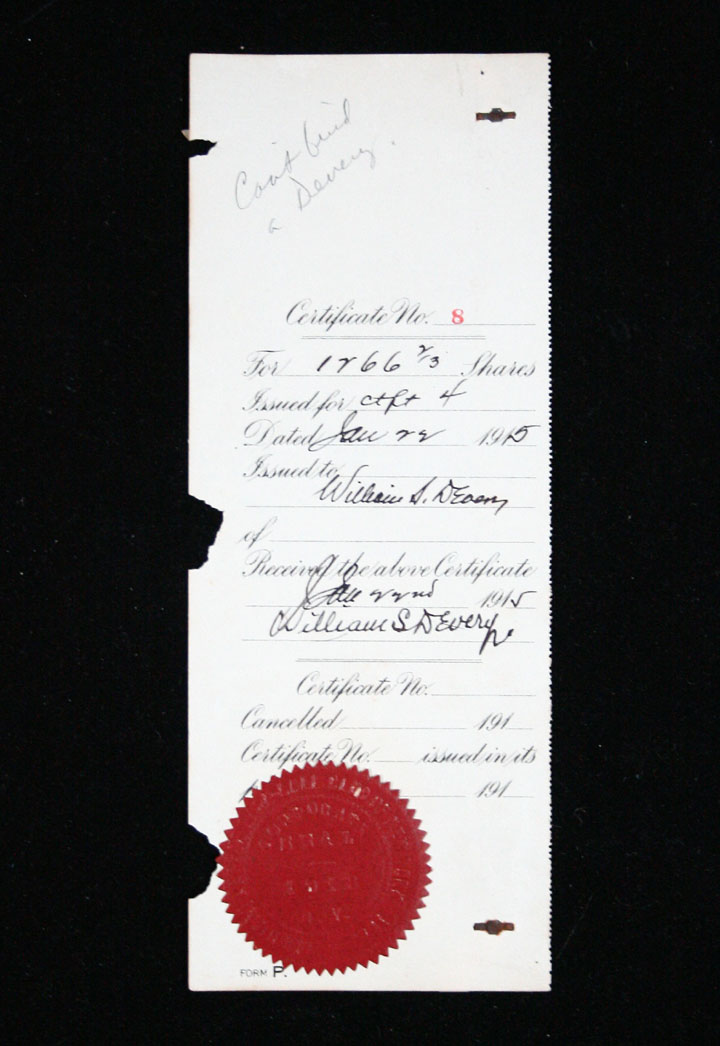 Can't find
a Devery.
Certificate No. 8
For 1266 2/3 Shares
Issued for ctft 4
Dated Jan 22 1915
Issued to
William S. Devery
of
Received the above Certificate
Jan 22nd 1915
William S Devery
Certificate No.
Cancelled 191
Certificate No. issued in its
191
CORPORATE
SEAL
1913
N.Y.
FORM P.